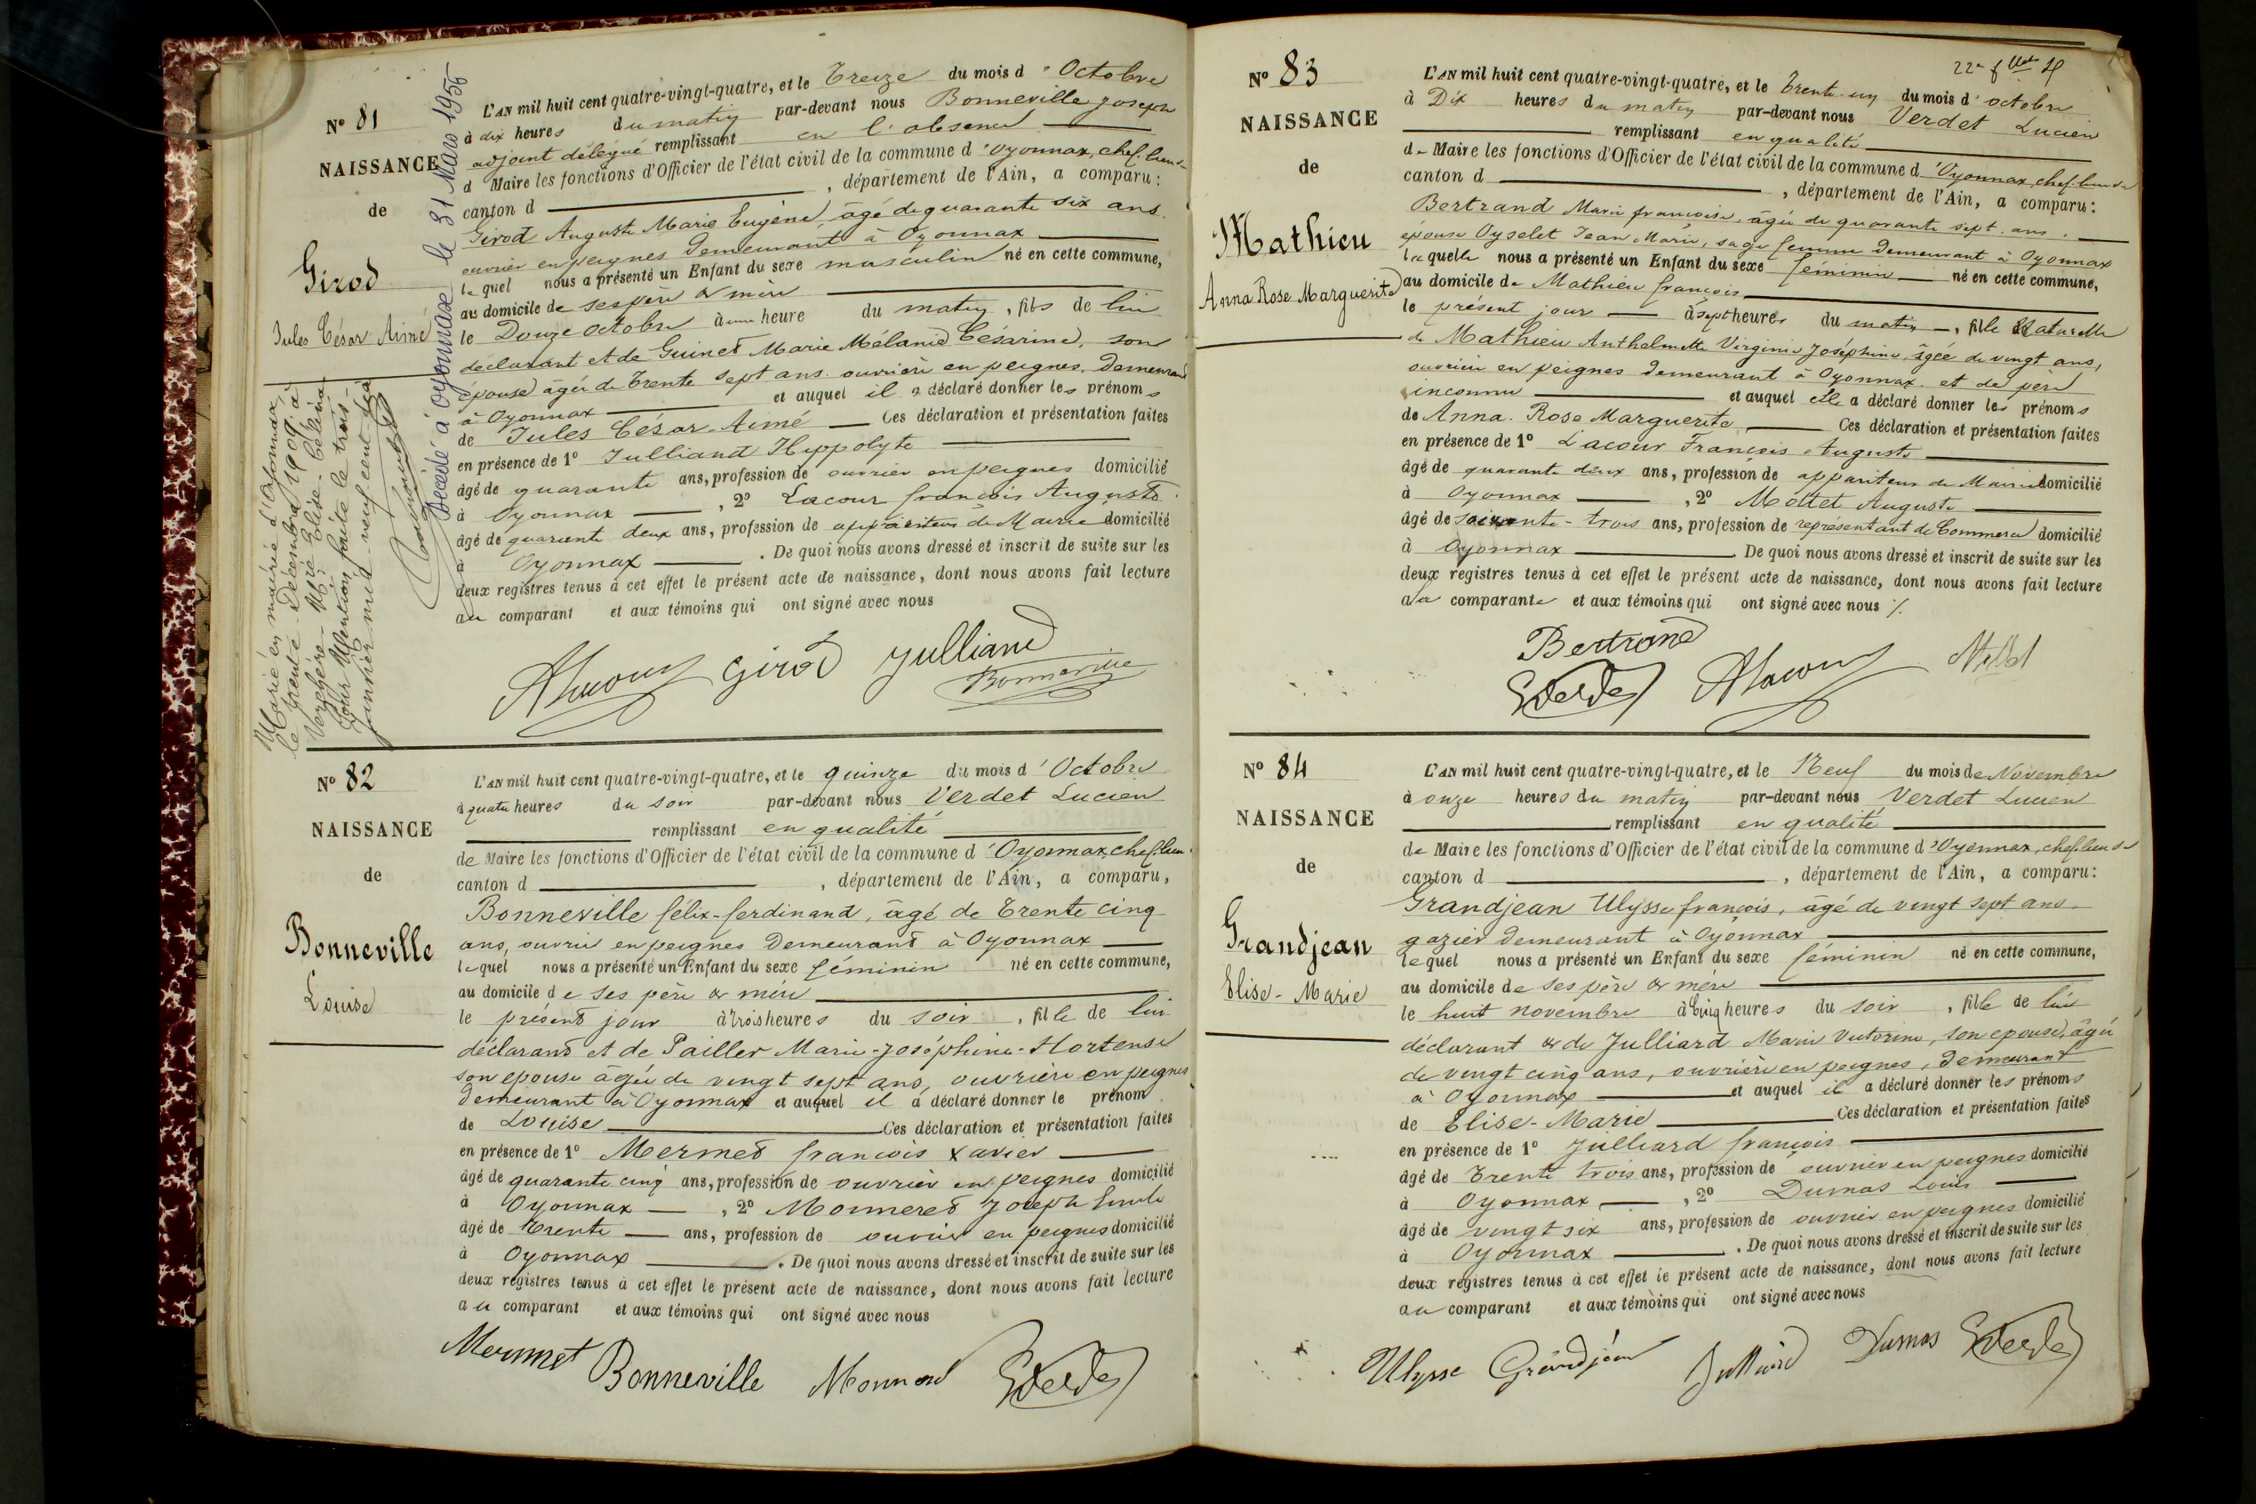 Nº 81
NAISSANCE
de
Girod
Jules César Aimé
Marié en mairie d'Oyonnax
le trente Décembre 1909 à
Verchère Mie Elise Célina
Pour Mention faite le trois
janvier mil neuf cent dix
Décédé à Oyonnax le 31 Mars 1955
L'AN mil huit cent quatre-vingt-quatre, et le Treize du mois d'Octobre
à dix heures du matin par-devant nous Bonneville Joseph
adjoint délégué remplissant en l'absence
d Maire les fonctions d'Officier de l'état civil de la commune d'Oyonnax, chef-lieu de
canton d , département de l'Ain, a comparu :
Girod Auguste Marie Eugène, âgé de quarante six ans
ouvrier en peignes demeurant à Oyonnax
lequel nous a présenté un Enfant du sexe masculin né en cette commune,
au domicile de ses père & mère
le Douze octobre à une heure du matin, fils de lui
déclarant et de Guinet Marie Mélanie Césarine, son
épouse âgée de trente sept ans ouvrière en peignes, demeurant
à Oyonnax et auquel il a déclaré donner les prénoms
de Jules César Aimé Ces déclaration et présentation faites
en présence de 1º Julliand Hippolyte
âgé de quarante ans, profession de ouvrier en peignes domicilié
à Oyonnax , 2º Lacour françois Auguste
âgé de quarante deux ans, profession de appariteur de Mairie domicilié
à Oyonnax . De quoi nous avons dressé et inscrit de suite sur les
deux registres tenus à cet effet le présent acte de naissance, dont nous avons fait lecture
au comparant et aux témoins qui ont signé avec nous
ALacour Girod Julliand
Bonneville
Nº 82
NAISSANCE
de
Bonneville
Louise
L'AN mil huit cent quatre-vingt-quatre, et le quinze du mois d'Octobre
à quatre heures du soir par-devant nous Verdet Lucien
remplissant en qualité
de Maire les fonctions d'Officier de l'état civil de la commune d'Oyonnax, chef-lieu
canton d , département de l'Ain, a comparu,
Bonneville félix-ferdinand, âgé de trente cinq
ans, ouvrier en peignes demeurant à Oyonnax
lequel nous a présenté un Enfant du sexe féminin né en cette commune,
au domicile de ses père & mère
le présent jour à trois heures du soir, fille de lui
déclarant et de Pailler Marie-Joséphine-Hortense
son épouse âgée de vingt sept ans, ouvrière en peignes
demeurant à Oyonnax et auquel il a déclaré donner le prénom
de Louise Ces déclaration et présentation faites
en présence de 1º Mermet françois Xavier
âgé de quarante cinq ans, profession de ouvrier en peignes domicilié
à Oyonnax , 2º Monneret Joseph Emile
âgé de trente ans, profession de ouvrier en peignes domicilié
à Oyonnax . De quoi nous avons dressé et inscrit de suite sur les
deux registres tenus à cet effet le présent acte de naissance, dont nous avons fait lecture
au comparant et aux témoins qui ont signé avec nous
Mermet Bonneville Verdet
Nº 83
NAISSANCE
de
Mathieu
Anna Rose Marguerite
L'AN mil huit cent quatre-vingt-quatre, et le trente-un du mois d'octobre
à Dix heures du matin par-devant nous Verdet Lucien
remplissant en qualité
de Maire les fonctions d'Officier de l'état civil de la commune d'Oyonnax, chef-lieu de
canton d , département de l'Ain, a comparu :
Bertrand Marie françoise, âgée de quarante sept ans.
épouse Oyselet Jean Marie, sage femme demeurant à Oyonnax
laquelle nous a présenté un Enfant du sexe féminin né en cette commune,
au domicile de Mathieu françois
le présent jour à sept heures du matin, fille Naturelle
de Mathieu Anthelmette Virginie Joséphine, âgée de vingt ans,
ouvrière en peignes demeurant à Oyonnax et de père
inconnu et auquel elle a déclaré donner les prénoms
de Anna Rose Marguerite Ces déclaration et présentation faites
en présence de 1º Lacour François Auguste
âgé de quarante deux ans, profession de appariteur de Mairie domicilié
à Oyonnax , 2º Mottet Auguste
âgé de soixante-trois ans, profession de représentant de Commerce domicilié
à Oyonnax . De quoi nous avons dressé et inscrit de suite sur les
deux registres tenus à cet effet le présent acte de naissance, dont nous avons fait lecture
à la comparante et aux témoins qui ont signé avec nous
Bertrand
Verdet ALacour
Nº 84
NAISSANCE
de
Grandjean
Elise-Marie
L'AN mil huit cent quatre-vingt-quatre, et le Neuf du mois de Novembre
à onze heures du matin par-devant nous Verdet Lucien
remplissant en qualité
de Maire les fonctions d'Officier de l'état civil de la commune d'Oyonnax, chef-lieu de
canton d , département de l'Ain, a comparu :
Grandjean Ulysse françois, âgé de vingt sept ans
gazier demeurant à Oyonnax
lequel nous a présenté un Enfant du sexe féminin né en cette commune,
au domicile de ses père & mère
le huit novembre à cinq heures du soir, fille de lui
déclarant & de Julliard Marie Victorine, son épouse, âgée
de vingt cinq ans, ouvrière en peignes, demeurant
à Oyonnax et auquel il a déclaré donner les prénoms
de Elise-Marie Ces déclaration et présentation faites
en présence de 1º Julliard françois
âgé de trente trois ans, profession de ouvrier en peignes domicilié
à Oyonnax , 2º Dumas Louis
âgé de vingt six ans, profession de ouvrier en peignes domicilié
à Oyonnax . De quoi nous avons dressé et inscrit de suite sur les
deux registres tenus à cet effet le présent acte de naissance, dont nous avons fait lecture
au comparant et aux témoins qui ont signé avec nous
Ulysse Grandjean Julliard Dumas Verdet